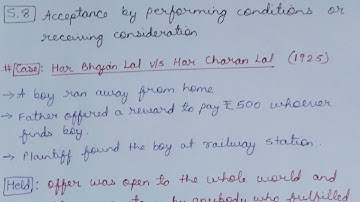 S.8 Acceptance by performing conditions or
receiving consideration
# Case: Har Bhajan Lal v/s Har Charan Lal (1925)
→ A boy ran away from home
→ Father offered a reward to pay ₹500 whoever
finds boy.
→ Plaintiff found the boy at railway station.
Held: offer was open to the whole world and
by anybody who fulfilled